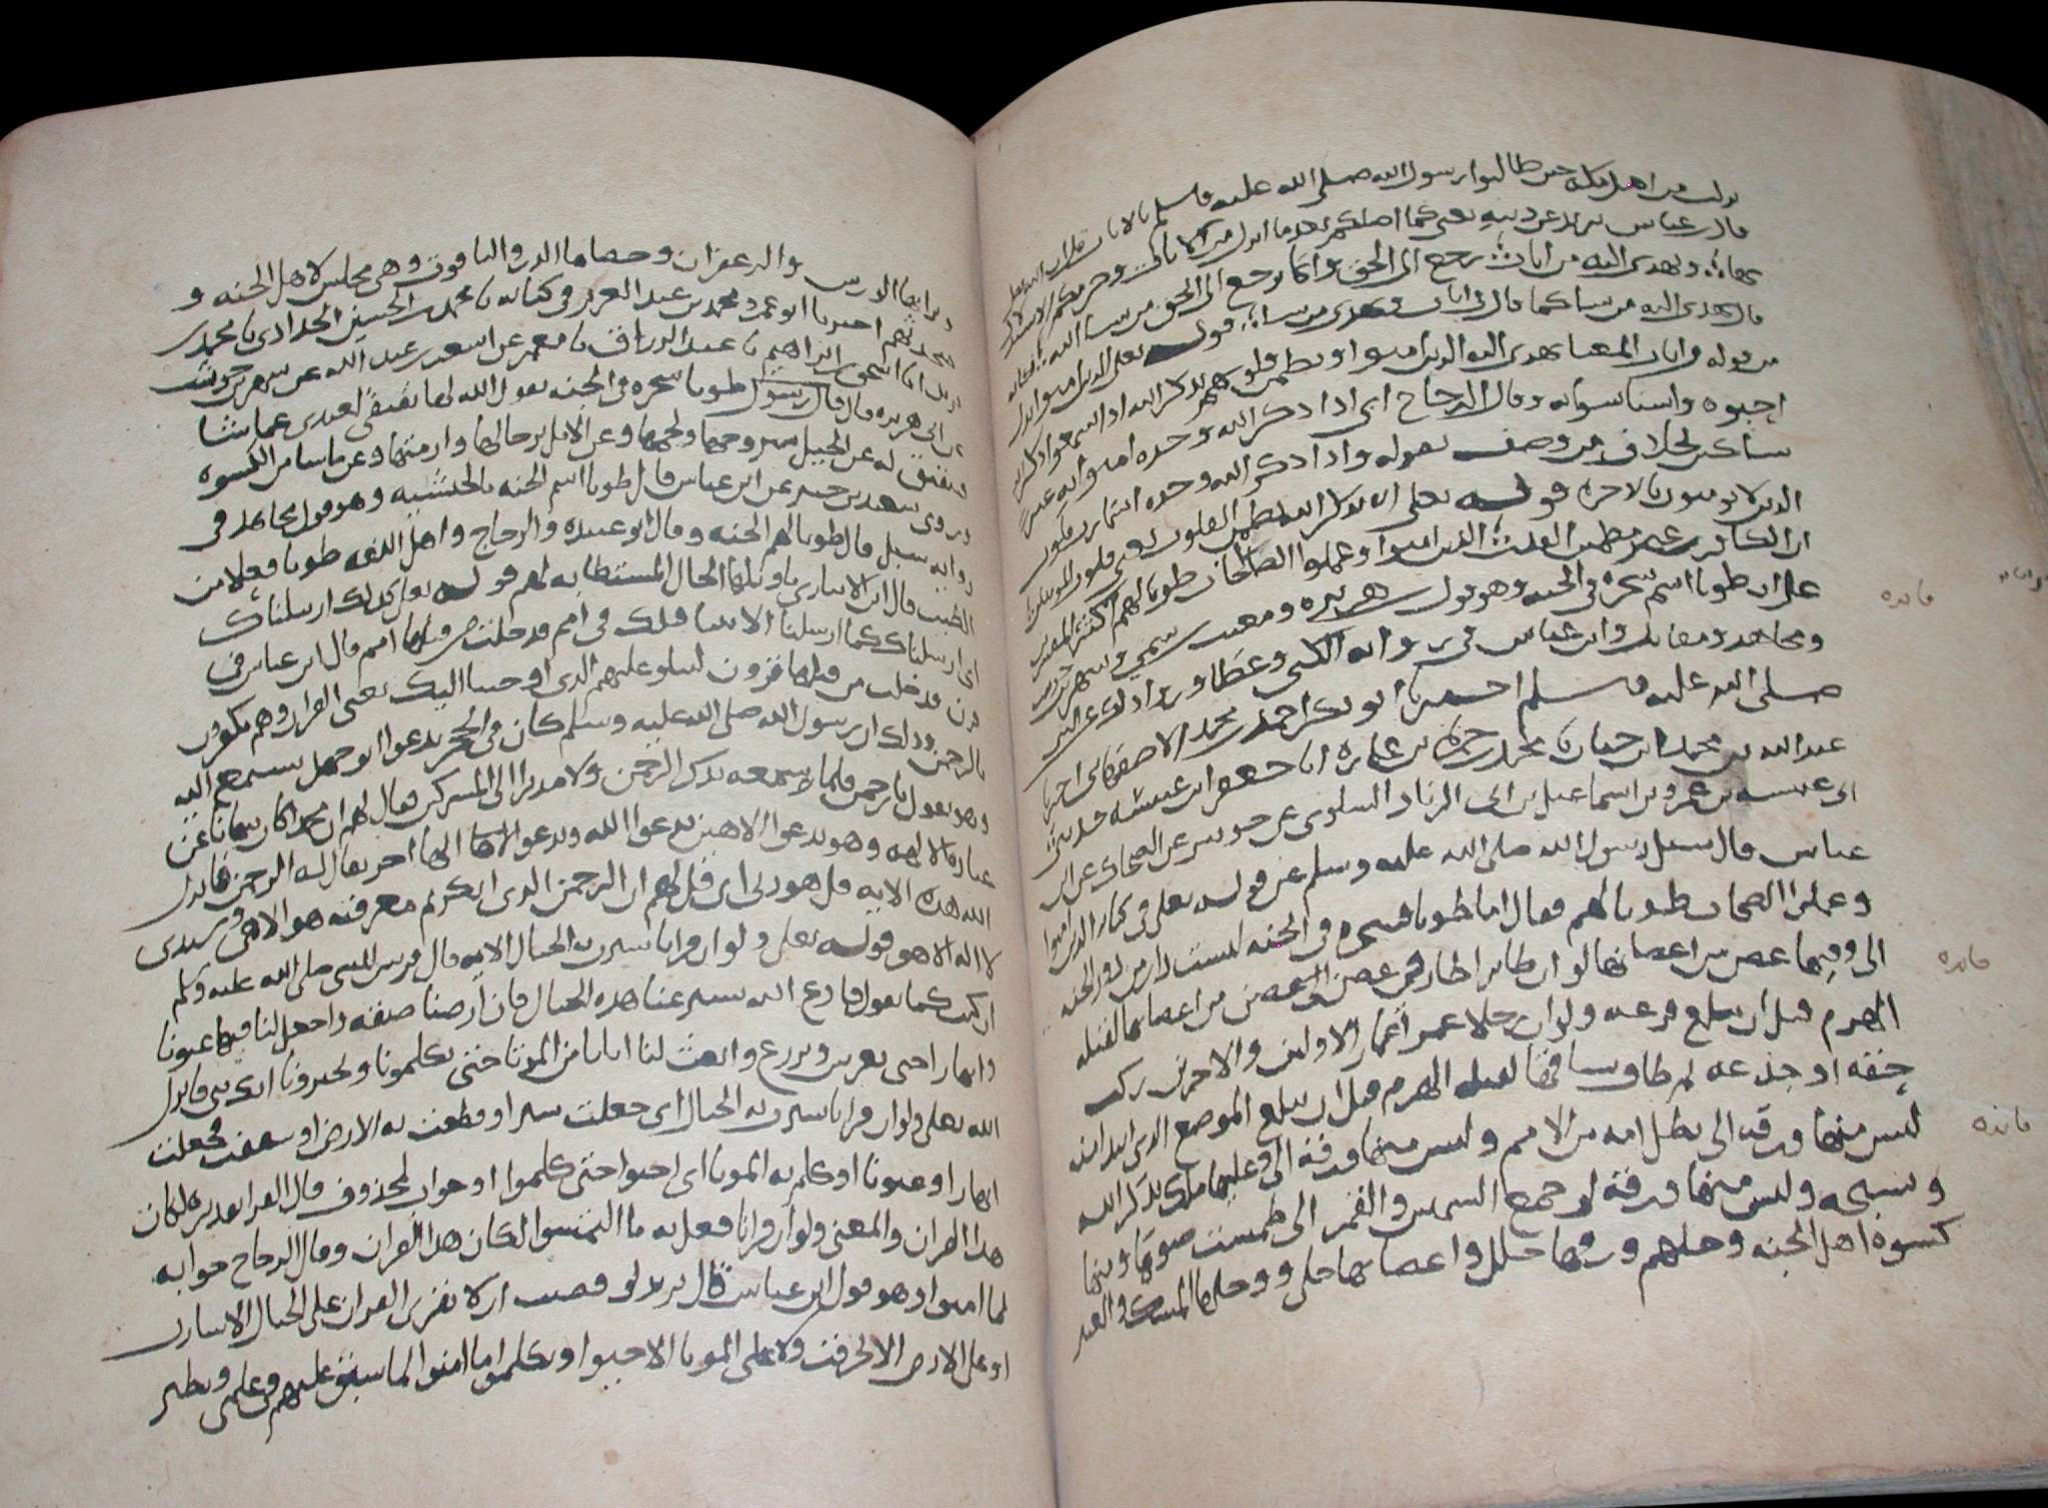 نزلت في اهل مكة حين طالبوا رسول الله صلى الله عليه وسلم بالايات
قال ابن عباس يريد عن دينه يعني كما اضلكم بعدما انزل من الايات وحرمكم الاستدلال
بها ويهدي اليه من اناب يرجع الى الحق وانما يرجع الى الحق من يشا الله
قال يهدي اليه من يشا كما قال
من قوله واناب المعنا يهدي اليه الذين امنوا وتطمين قلوبهم بذكر الله اذا سمعوا ذكر الله
احبوه واستانسوا به وقال الزجاج اي اذا ذكر الله وحده امنوا به غير
شاكين بخلاف من وصف بقوله واذا ذكر الله وحده اشمازت قلوب
الذين لا يومنون بالاخرة قوله تعلى الا بذكر الله تطمين القلوب يعني قلوب المومنين
ان الكافر غير مطمين القلب الذين امنوا وعملوا الصالحات طوبا لهم اكثر المفسرين
على ان طوبا اسم شجرة في الجنة وهو قول ابي هريرة ومغيث بن سمي وشهر بن حوشب
ومجاهد ومقاتل وابن عباس في رواية الكلبي وعطا
صلى الله عليه وسلم اخبرنا ابو بكر احمد بن محمد الاصفهاني اخبرنا
عبد الله بن محمد ابن حيان نا محمد بن حمزة بن عمارة انا جعفر ابن عنبسة حدثني
ابي عنبسة بن عمرو بن اسماعيل بن ابي الزناد السلوي عن جويبر عن الضحاك عن ابن
عباس قال سيل رسول الله صلى الله عليه وسلم عن قوله تعلى في كتابه الذين امنوا
وعملوا الصالحات طوبا لهم فقال اما طوبا فشجرة في الجنة ليست دار من دور الجنة
الى وفيها غصن من اغصانها لو ان طايرا طار في غصن من اغصانها لقتله
الهرم قبل ان يبلغ فرعه ولو ان رجلا عمر اعمار الاولين والاخرين ركب
حقه او جذعه ثم طاف بساقها لقتله الهرم قبل ان يبلغ الموضع الذي ابتدا منه
ليس منها ورقة الى تظل امة من الامم وليس منها ورقة الى وعليها ملك يذكر الله
ويسبحه وليس منها ورقة لو جمع الشمس والقمر الى طمست ضوها ومنها
كسوة اهل الجنة وحليهم ورقها حلل واغصانها حلى ووحلها المسك والعنبر
فايده
فايده
فايده
وترابها الورس والزعفران وحصاها الدر والياقوت وهي مجلس لاهل الجنة و
متحدثهم اخبرنا ابو عمر محمد بن عبد العزيز في كتابه نا محمد بن الحسين الحدادي نا محمد بن
يزيد انا اسحق بن ابراهيم نا عبد الرزاق نا معمر عن اشعث بن عبد الله عن شهر بن حوشب
عن ابي هريرة قال قال رسول طوبا شجرة في الجنة يقول الله لها تفتقي لعبدي عما شا
فتفتق له عن الخيل بسروجها ولجمها وعن الابل برحالها وازمتها وعن ما شا من الكسوة
وروى سعيد بن جبير عن ابن عباس قال طوبا اسم الجنة بالحبشية وهو قول مجاهد في
رواية شبل قال طوبا لهم الجنة وقال ابو عبيدة والزجاج واهل اللغة طوبا فعلا من
الطيب قال ابن الانباري وتاويلها الحال المستطابة لهم قوله تعلى كذلك ارسلناك
اي ارسلناك كما ارسلنا الانبيا قبلك في امم قد خلت من قبلها امم قال ابن عباس في
قد خلت من قبلها قرون لتتلو عليهم الذي اوحينا اليك يعني القران وهم يكفرون
بالرحمن وذلك ان رسول الله صلى الله عليه وسلم كان في الحجر يدعوا ابو جهل يستمع اليه
وهو يقول يا رحمن فلما سمعه يذكر الرحمن ولا مدبرا الى المشركين فقال لهم ان محمدا كان ينهانا عن
عبادة الالهة وهو يدعوا الاهين يدعوا الله ويدعوا الها اخر يقال له الرحمن فانزل
الله هذه الاية قل هو ربي اي قل لهم ان الرحمن الذي انكرتم معرفته هو الاهي وسيدي
لا اله الا هو قوله تعلى ولو ان قرانا سيرت به الجبال الاية قال قريش للنبي صلى الله عليه وسلم
ان كنت كما تقول فادع الله يسير عنا هذه الجبال فان ارضنا ضيقة واجعل لنا فيها عيونا
وانهارا حتى نغرس ونزرع وابعث لنا ابانا من الموتا حتى يكلمونا ويخبرونا انك نبي فانزل
الله تعلى ولو ان قرانا سيرت به الجبال اي جعلت تسير او قطعت به الارض او شققت فجعلت
انهارا وعيونا او كلم به الموتا اي احيوا حتى كلموا وجواب لو محذوف قال الفرا تقديره لكان
هذا القران والمعنى ولو ان قرانا فعل به ما التمسوا لكان هذا القران وقال الزجاج جوابه
لما امنوا وهو قول ابن عباس قال يريد لو قضيت ان لا يقرا القران على الجبال الا سارت
او على الارض الا تخرقت ولا على الموتا الا حيوا وتكلموا ما امنوا لما سبق عليهم في علمي ونظير